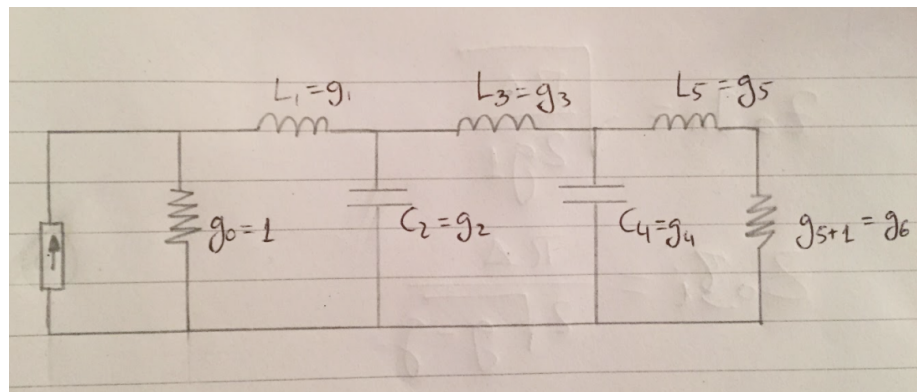 L₁=g₁ L₃=g₃ L₅=g₅
g₀=1 C₂=g₂ C₄=g₄ g₅₊₁=g₆